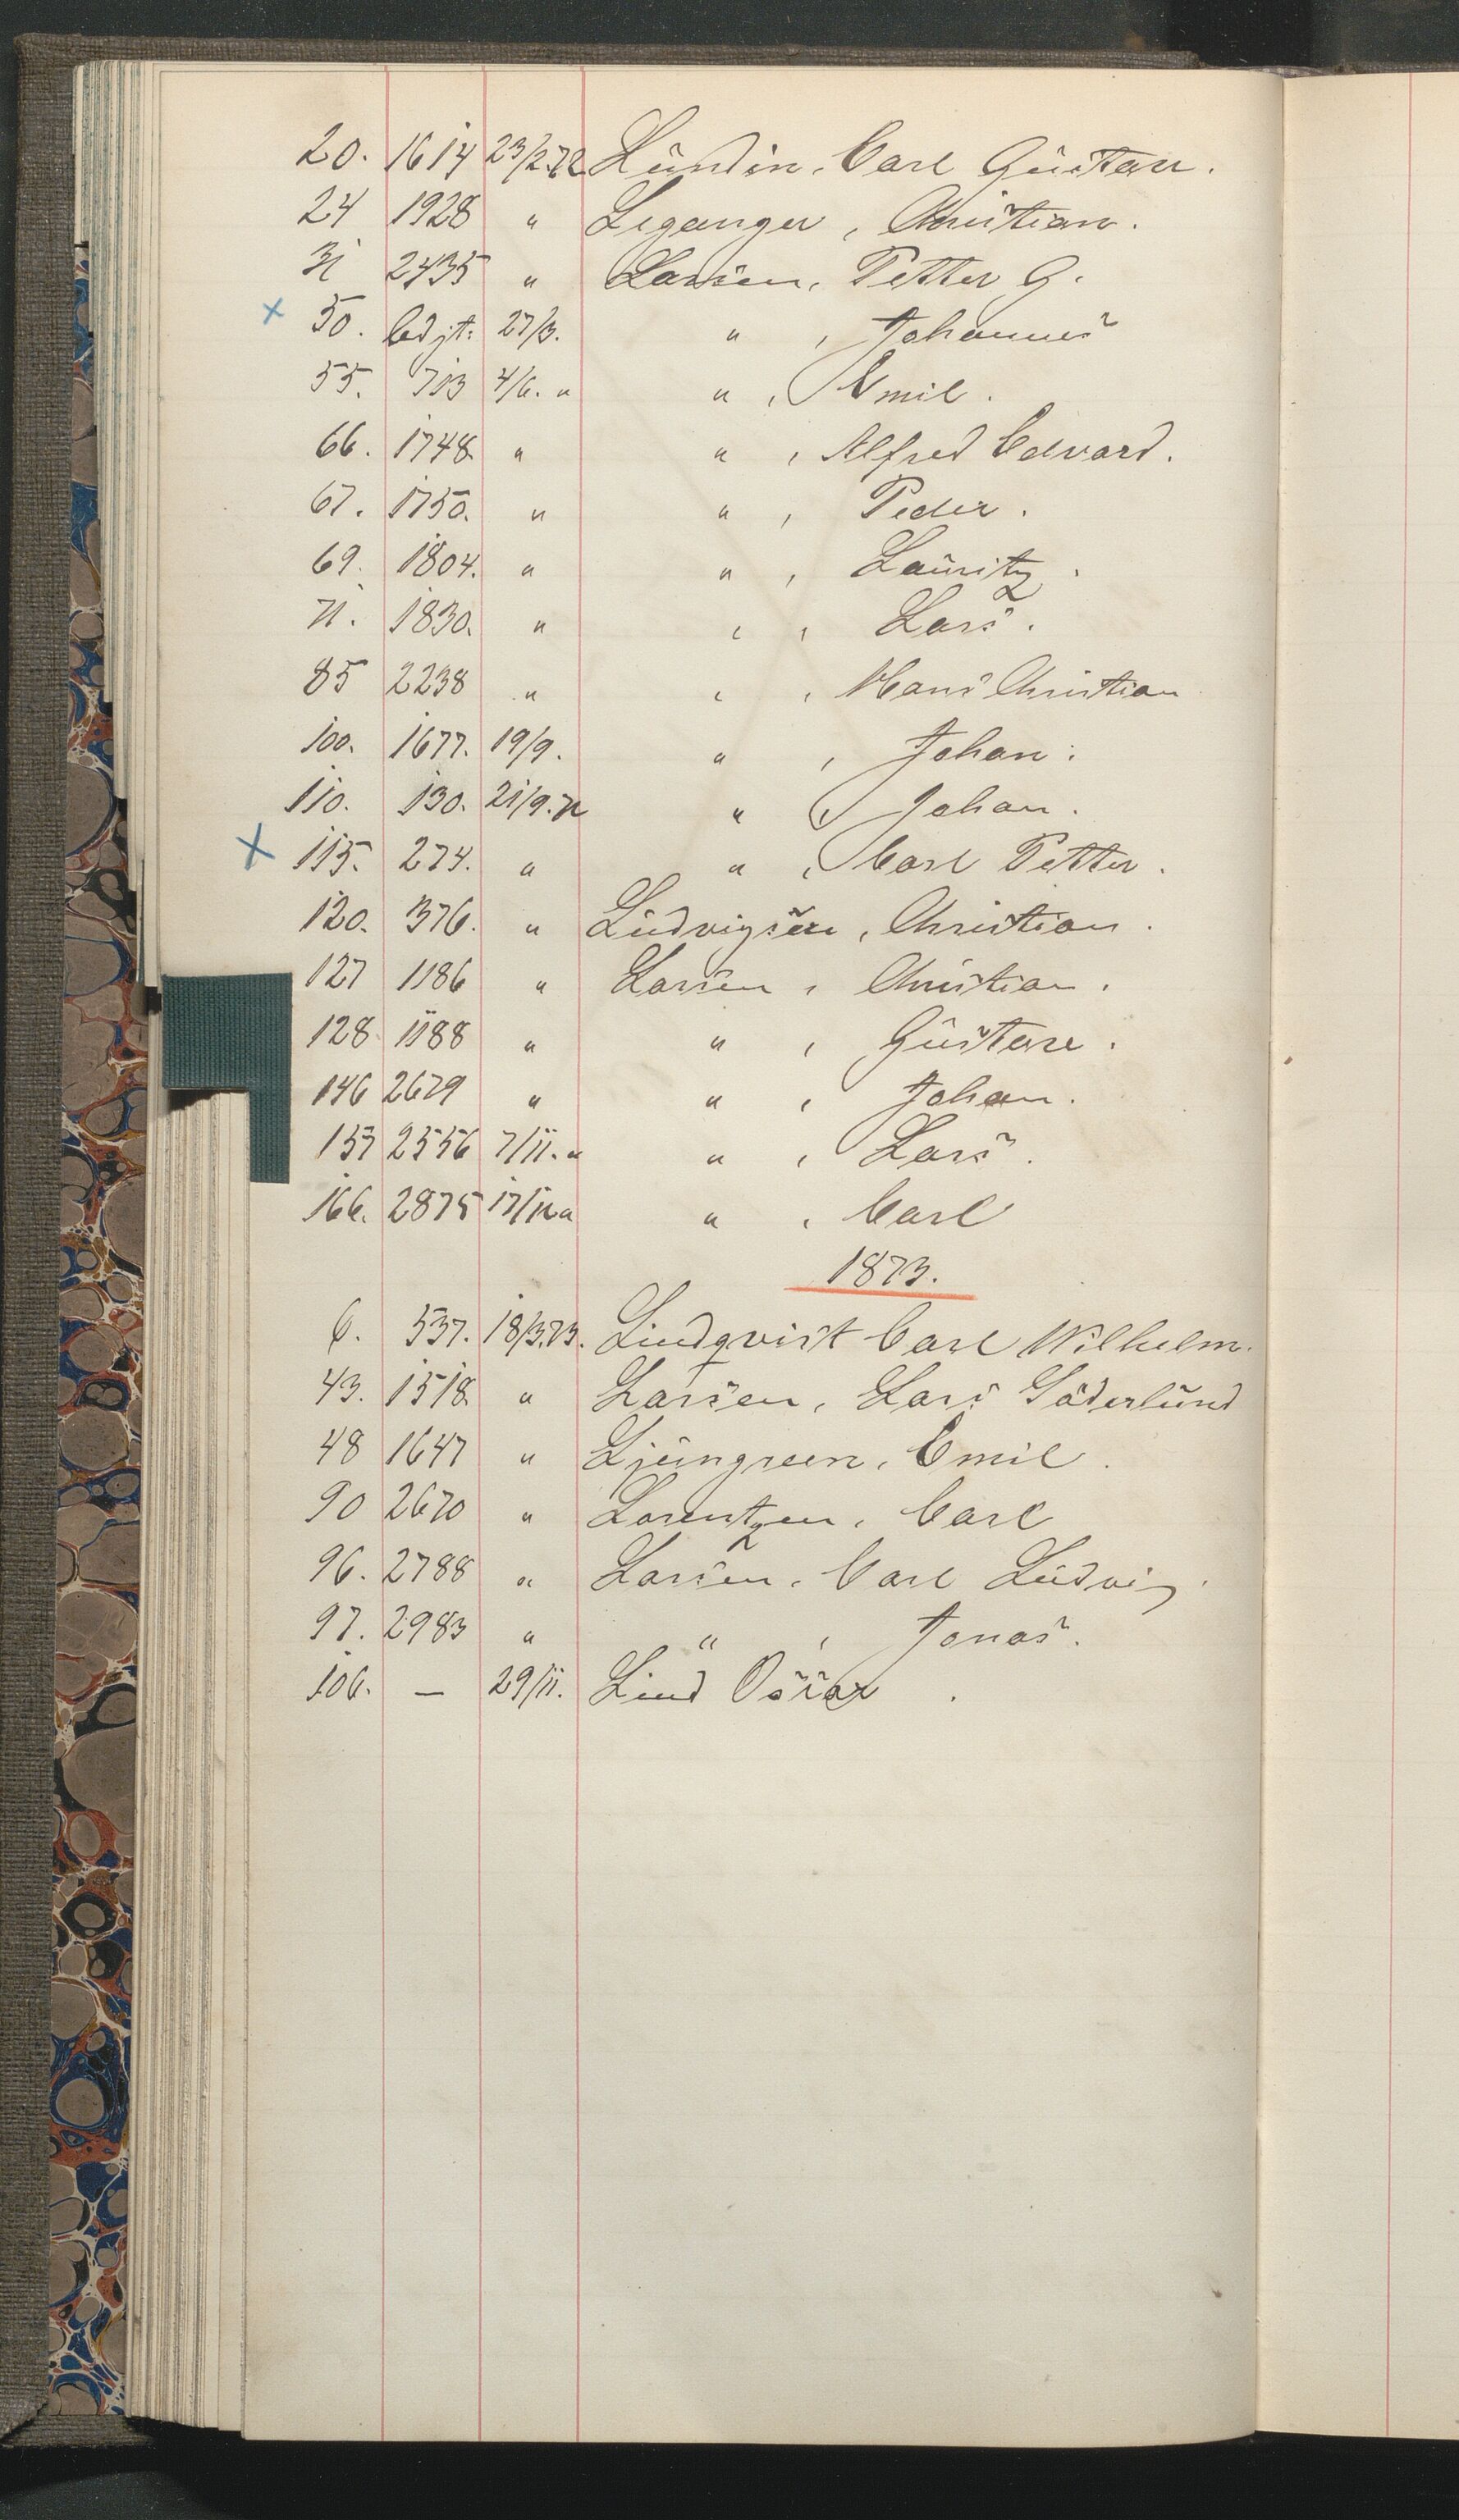 20. 1614 23/2.72 Lundin, Carl Gustav.
24 1928 " Leganger, Christian.
31 2435 " Larsen, Petter G.
x 50. Edjt. 27/3. " , Johannes
55. 713 4/6. " " , Emil.
66. 1748 " " , Alfred Edvard.
67. 1750. " " , Peder.
69. 1804. " " , Lauritz.
71. 1830. " " , Lars.
85 2238 " " , Hans Christian
100. 1677. 19/9. " , Johan.
110. 130. 21/9.72 " , Johan.
x 115. 274. " " , Carl Petter.
120. 376. " Ludvigsen, Christian.
127 1186 " Larsen, Christian.
128 1188 " " , Gustav.
146 2679 " " , Johan.
157 2556 7/11. " " , Lars.
166. 2875 17/12 " " , Carl
1873.
6. 537. 18/3.73. Lindqvist Carl Wilhelm.
43. 1518 " Larsen, Lars Söderlund
48 1647 " Ljungreen, Emil.
90 2670 " Lorentzen, Carl
96. 2788 " Larsen, Carl Ludvig.
97. 2983 " " , Jonas.
106. — 29/11. Lind Oscar.